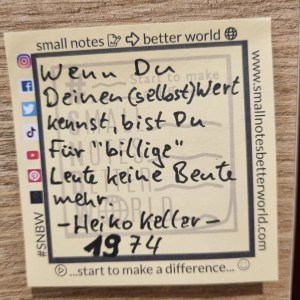 small notes → better world
Wenn Du
Deinen (selbst)Wert
kennst, bist Du
für "billige"
Leute keine Beute
mehr.
-Heiko Keller-
1974
#SNBW
www.smallnotesbetterworld.com
...start to make a difference...